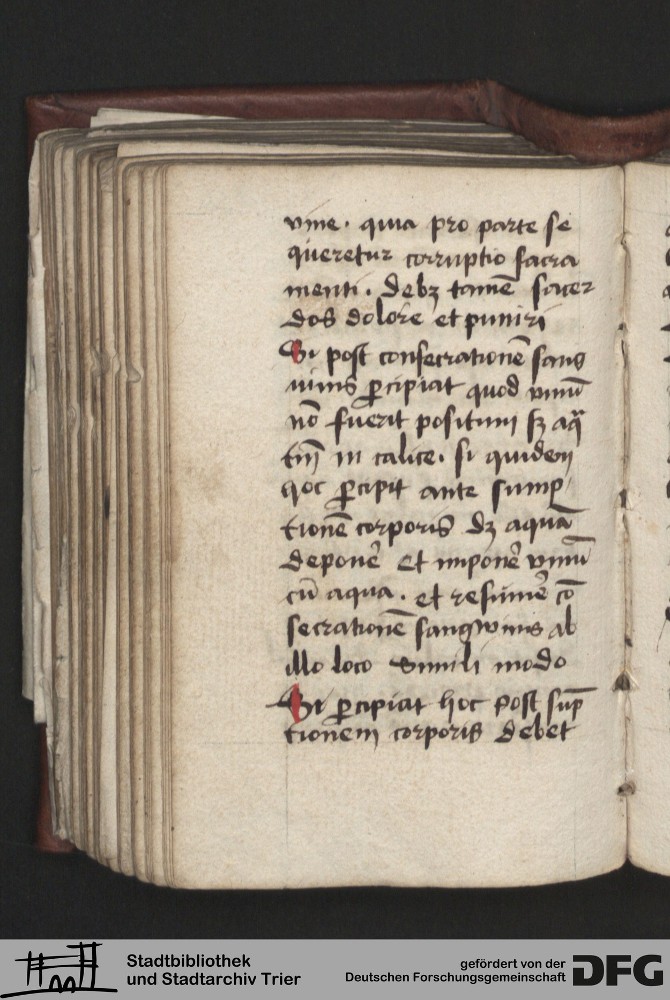 vine . quia pro parte se
queretur corruptio sacra
menti . debꝫ tamē sacer
dos dolore et puniri
Si post consecrationē sang
uinis ꝑcipiat quod vinū
nō fuerit positum sꝫ aq̄
tm̄ in calice . si quidem
hoc ꝑcipit ante sump
tionē corporis dꝫ aquā
deponē et imponē vinū
cū aqua . et resumē cō
secrationē sangwinis ab
illo loco Simili modo
Si ꝑcipiat hoc post sūp
tionem corporis debet
Stadtbibliothek
und Stadtarchiv Trier
gefördert von der
Deutschen Forschungsgemeinschaft
DFG